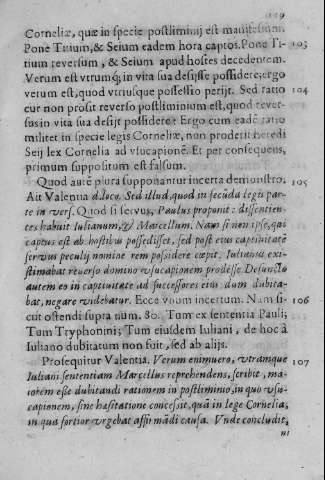 Corneliæ, quæ in specie postliminij est manifestum.
Pone Titium, & Seium eadem hora captos. Pone Ti- 103
tium reversum, & Seium apud hostes decedentem.
Verum est utrumq; in vita sua desijsse possidere; ergo
verum est, quod utriusque possessio perijt. Sed ratio 104
cur non prosit reverso postliminium est, quod rever-
sus in vita sua desijt possidere: Ergo cum eadē ratio
militet in specie legis Corneliæ, non proderit heredi
Seij lex Cornelia ad vsucapionē. Et per consequens,
primum suppositum est falsum.
Quod autē plura supponantur incerta demonstro. 105
Ait Valentia d. loco. Sed illud, quod in secūda legis par-
te in vers. Quod si servus, Paulus proponit: dissentien-
tes habuit Iulianum, & Marcellum. Nam si non ipse, qui
captus est ab hostibus possedisset, sed post eius captiuitatē
servus peculij nomine rem possidere cœpit, Iulianus exi-
stimabat reverso domino vsucapionem prodesse. Defuncto
autem eo in captiuitate ad successores eius dum dubita-
bat, negare videbatur. Ecce vnum incertum. Nam si- 106
cut ostendi supra num. 80. Tum ex sententia Pauli;
Tum Tryphonini; Tum eiusdem Iuliani, de hoc à
Iuliano dubitatum non fuit, sed ab alijs.
Prosequitur Valentia. Verum enimuero, vtramque 107
Iuliani sententiam Marcellus reprehendens, scribit, ma-
iorem esse dubitandi rationem in postliminio, in quo vsu-
capionem, sine hæsitatione concessit, quā in lege Cornelia,
in qua fortior vrgebat affirmādi causa. Vnde concludit,
ni